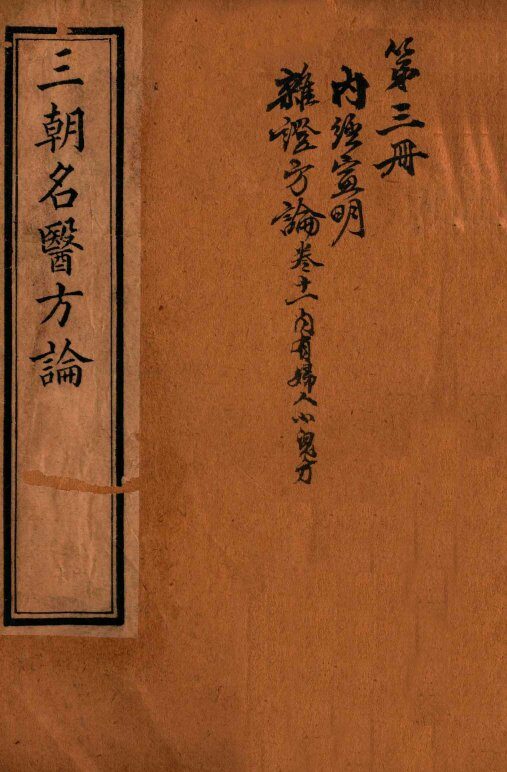 第三冊
內經宣明
雜證方論卷十一內有婦人小兒方
三朝名醫方論